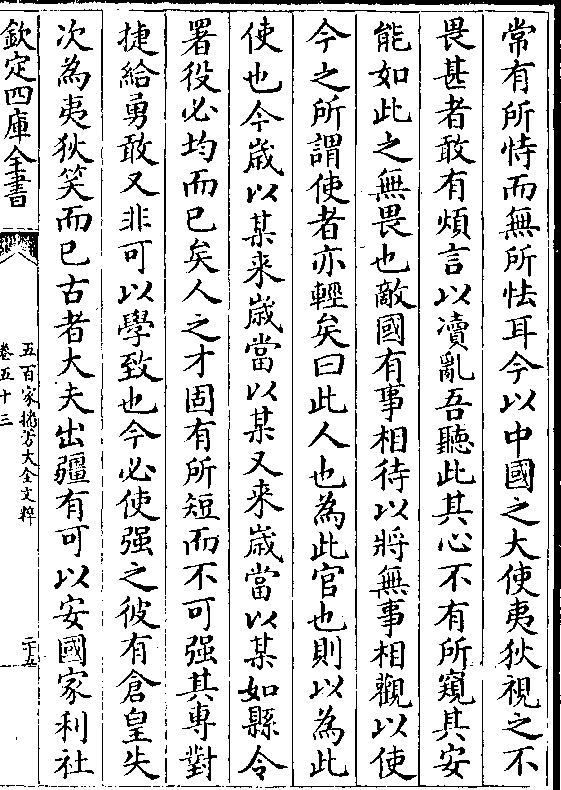 常有所恃而無所怯耳今以中國之大使夷狄視之不
畏甚者敢有煩言以凟亂吾聽此其心不有所窺其安
能如此之無畏也敵國有事相待以將無事相觀以使
今之所謂使者亦輕矣曰此人也為此官也則以為此
使也今嵗以某来嵗當以某又来嵗當以某如縣令
署役必均而已矣人之才固有所短而不可强其專對
捷給勇敢又非可以學致也今必使强之彼有倉皇失
次為夷狄笑而已古者大夫出疆有可以安國家利社
欽定四庫全書
五百家播芳大全文粹
卷五十三
二十五